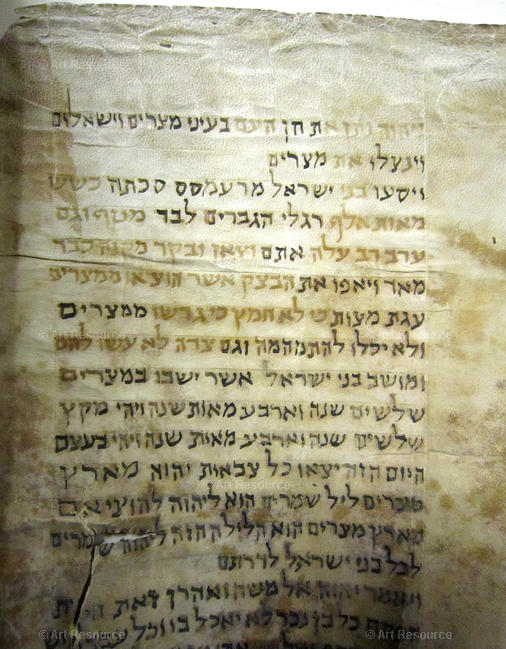 © Art Resource
© Art Resource
ויהוה נתן את חן העם בעיני מצרים וישאלום
וינצלו את מצרים
ויסעו בני ישראל מרעמסס סכתה כשש
מאות אלף רגלי הגברים לבד מטף וגם
ערב רב עלה אתם וצאן ובקר מקנה כבד
מאד ויאפו את הבצק אשר הוציאו ממצרים
עגת מצות כי לא חמץ כי גרשו ממצרים
ולא יכלו להתמהמה וגם צדה לא עשו להם
ומושב בני ישראל אשר ישבו במצרים
שלשים שנה וארבע מאות שנה ויהי מקץ
שלשים שנה וארבע מאות שנה ויהי בעצם
היום הזה יצאו כל צבאות יהוה מארץ
מצרים ליל שמרים הוא ליהוה להוציאם
מארץ מצרים הוא הלילה הזה ליהוה שמרים
לכל בני ישראל לדרתם
ויאמר יהוה אל משה ואהרן זאת
כל בן נכר לא יאכל בו וכל עבד
© Art Resource
© Art Resource